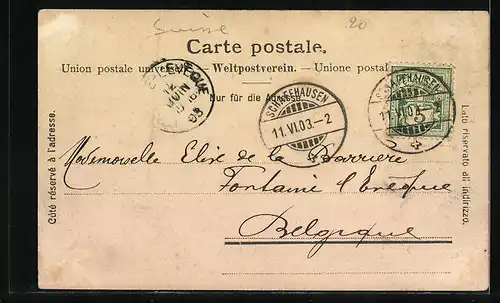 Suisse
20
Carte postale.
Union postale universelle. — Weltpostverein. — Unione postale
Nur für die Adresse.
Côté réservé à l'adresse.
Lato riservato all'indirizzo.
L'EVEQUE
12
JUIN
03
SCHAFFHAUSEN
11.VI.03.–2
4
SCHAFFHAUSEN
11.VI.03.–2
4
5
Mademoiselle Elise de la Barrière
Fontaine l'Evêque
Belgique